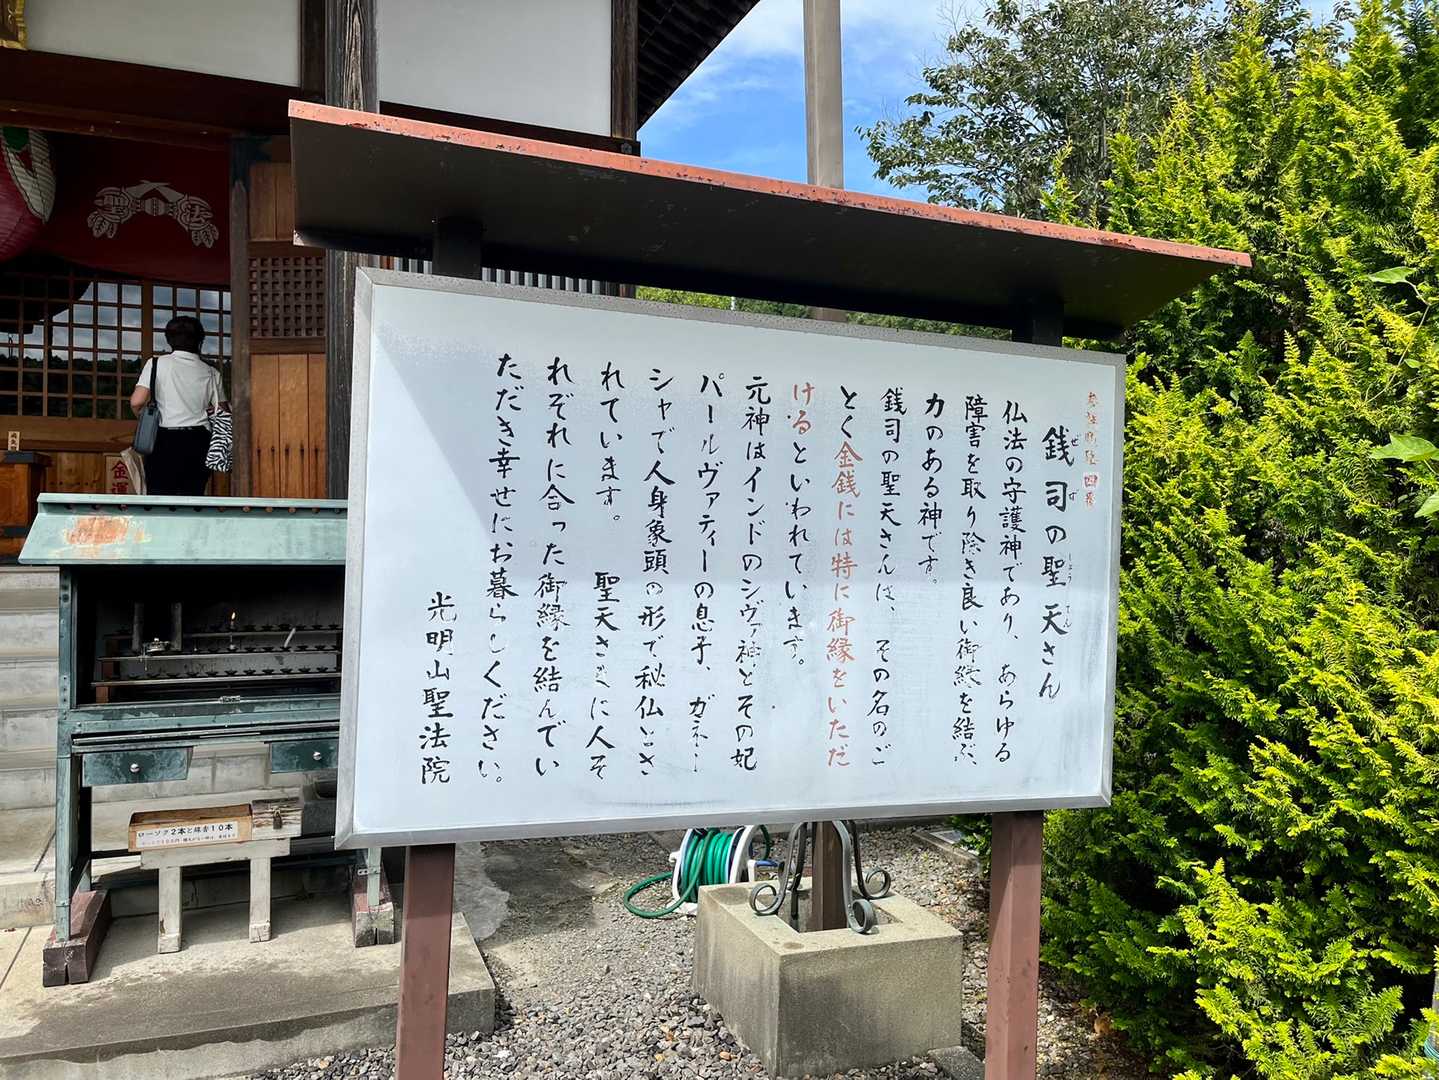 銭司の聖天さん
ぜず
しょうてん
仏法の守護神であり、あらゆる
障害を取り除き良い御縁を結ぶ、
力のある神です。
銭司の聖天さんは、その名のご
とく金銭には特に御縁をいただ
けるといわれています。
元神はインドのシヴァ神とその妃
パールヴァティーの息子、ガネー
シャで人身象頭の形で秘仏とさ
れています。 聖天さまに人そ
れぞれに合った御縁を結んでい
ただき幸せにお暮らしください。
光明山聖法院
聖
法
金運
ローソク2本と線香10本